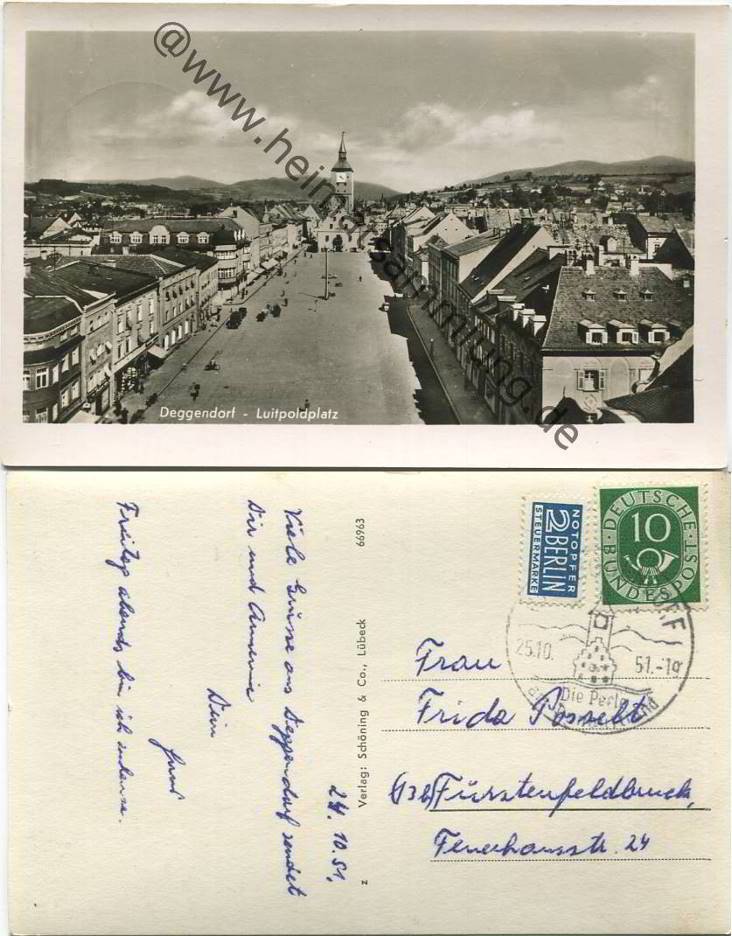 @www.heimatsammlung.de
Deggendorf - Luitpoldplatz
24.10.51.
Viele Grüsse aus Deggendorf sendet
Dir und
Dein
Freitag abends bin ich
Verlag: Schöning & Co., Lübeck
66963
z
NOTOPFER
2 BERLIN
STEUERMARKE
DEUTSCHE
10
BUNDESPOST
25.10. 51.-19
Die Perle
Frau
Frida Posselt
(13b) Fürstenfeldbruck,
Feuerhausstr. 24